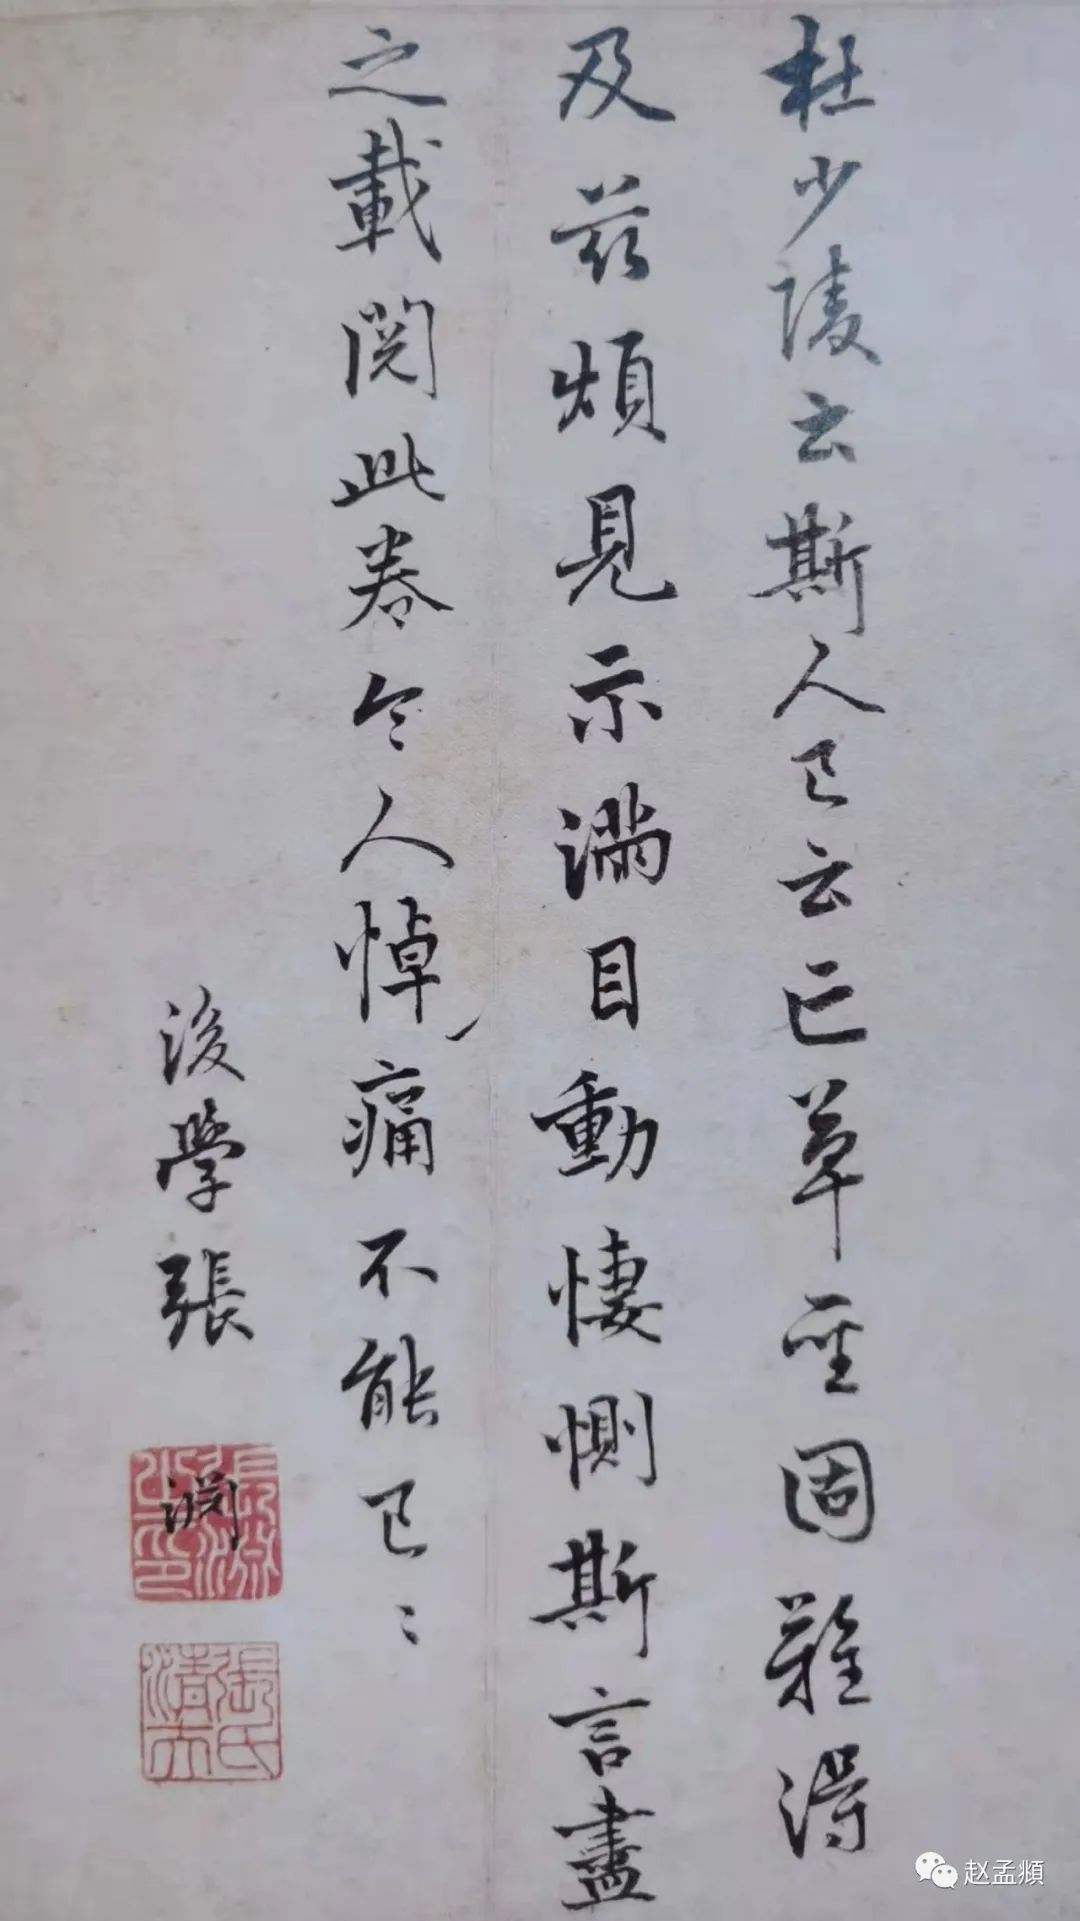 杜少陵云斯人已云亡草聖固難得
及茲煩見示滿目動悽惻斯言盡
之載閱此卷令人悼痛不能已〻
後學張淵
張淵之印
張氏清夫
赵孟頫